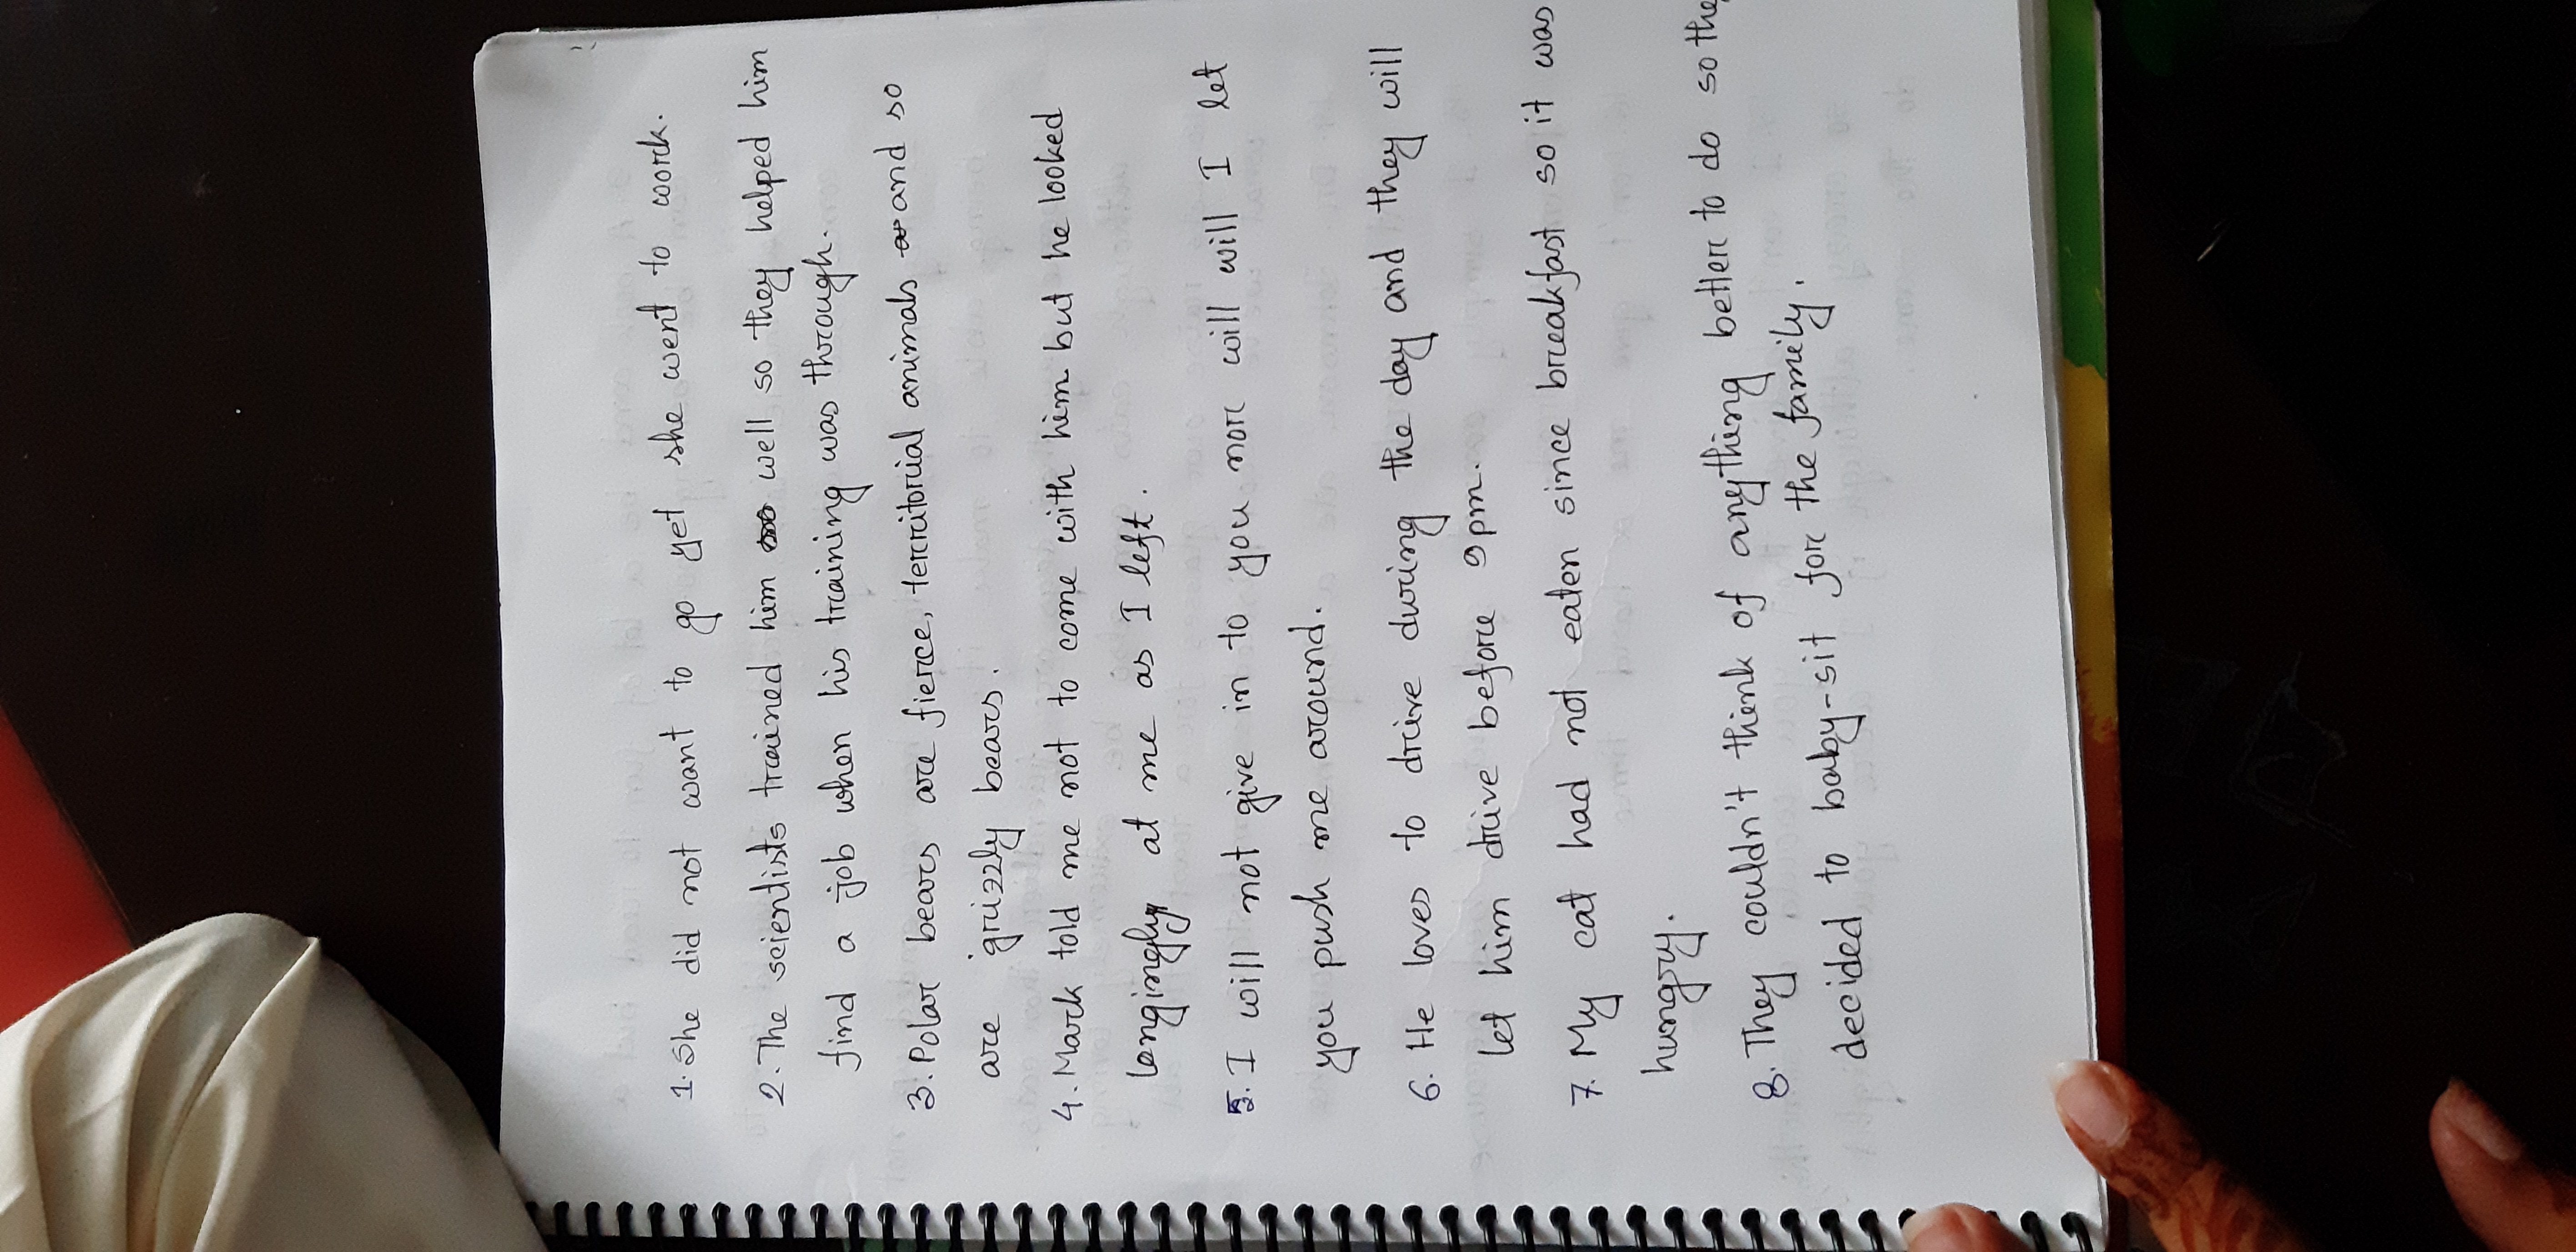 1. She did not want to go yet she went to work.
2. The scientists trained him well so they helped him
find a job when his training was through.
3. Polar bears are fierce, territorial animals and so
are grizzly bears.
4. Mark told me not to come with him but he looked
longingly at me as I left.
5. I will not give in to you nor will will I let
you push me around.
6. He loves to drive during the day and they will
let him drive before 9pm.
7. My cat had not eaten since breakfast so it was
hungry.
8. They couldn't think of anything better to do so the
decided to baby-sit for the family.